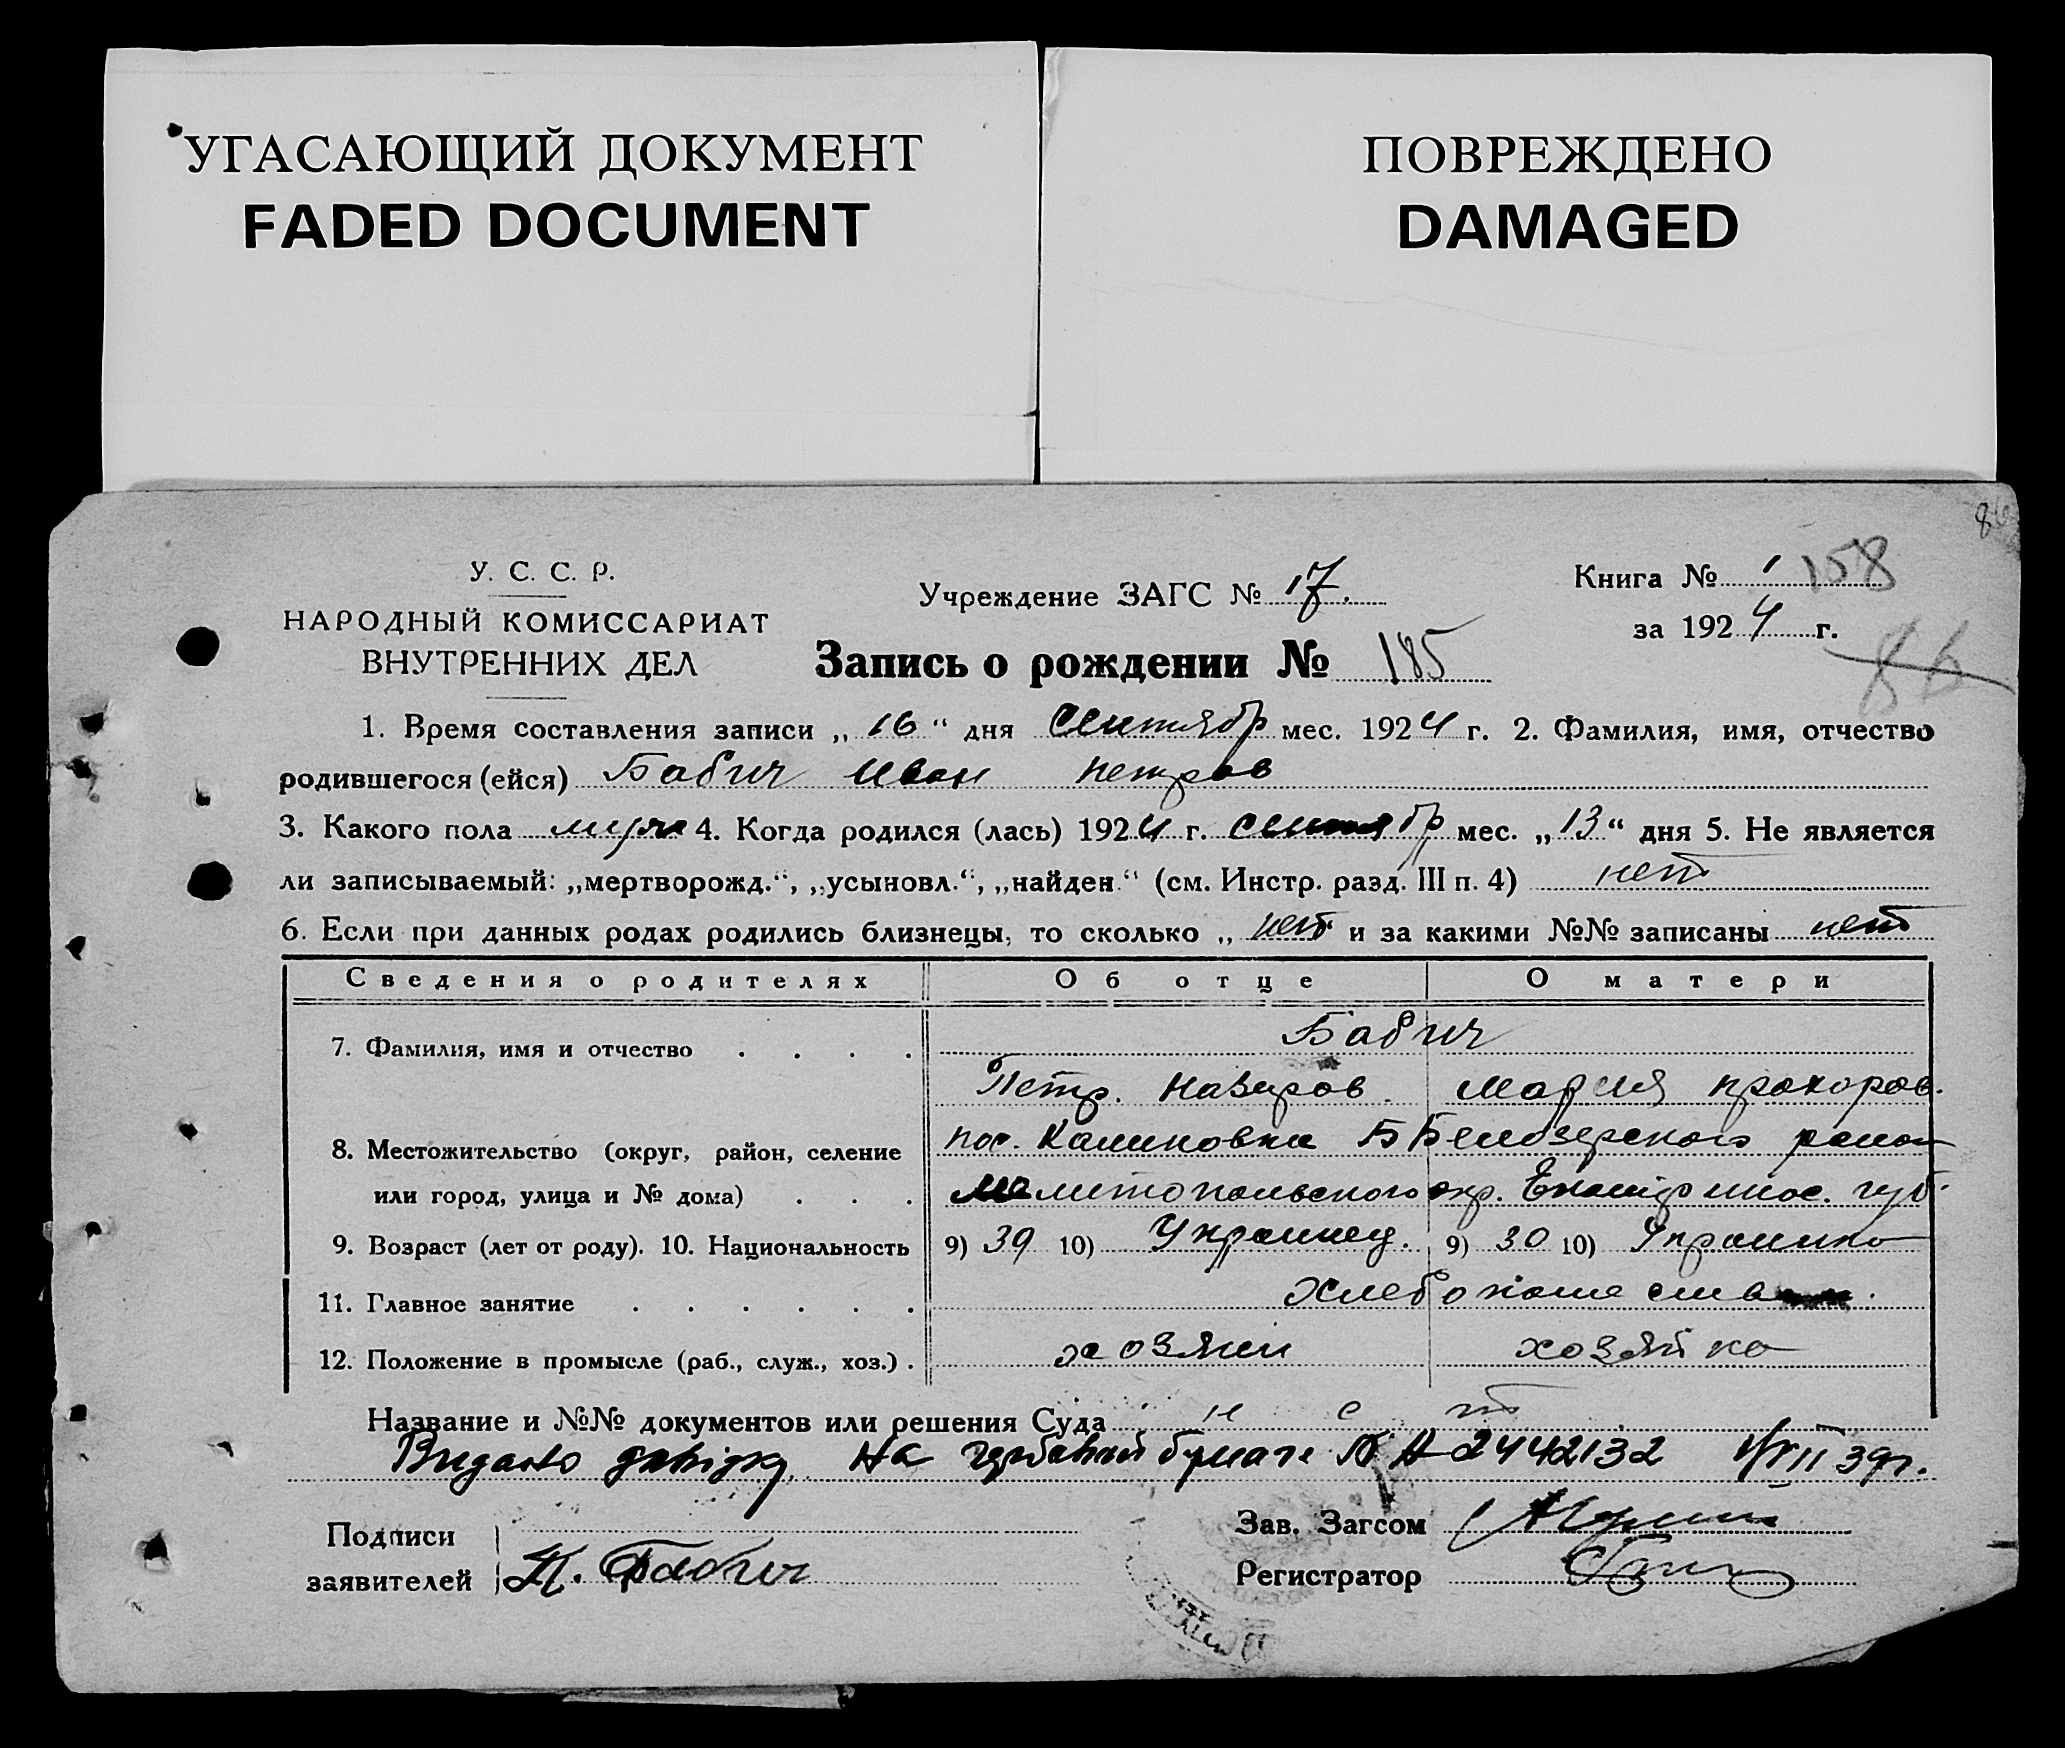 УГАСАЮЩИЙ ДОКУМЕНТ
FADED DOCUMENT
ПОВРЕЖДЕНО
DAMAGED
86
У. С. С. Р.
НАРОДНЫЙ КОМИССАРИАТ
ВНУТРЕННИХ ДЕЛ
Учреждение ЗАГС № 17.
Книга № 1 158
за 1924 г.
86
Запись о рождении № 185
1. Время составления записи „16“ дня Сентябр мес. 1924 г. 2. Фамилия, имя, отчество
родившегося (ейся) Бабич Иван Петров
3. Какого пола муж 4. Когда родился (лась) 1924 г. сентябр мес. „13“ дня 5. Не является
ли записываемый: „мертворожд.“, „усыновл.“, „найден.“ (см. Инстр. разд. III п. 4) нет
6. Если при данных родах родились близнецы, то сколько „ нет и за какими №№ записаны нет
Сведения о родителях Об отце О матери
7. Фамилия, имя и отчество . . . . Бабич
Петр. Назаров. Мария Прохоров.
8. Местожительство (округ, район, селение пос. Калиновка Б Белозерского район
или город, улица и № дома) . . . Мелитопольского окр. Екатеринос. губ.
9. Возраст (лет от роду). 10. Национальность 9) 39 10) Украинец. 9) 30 10) Украинка
11. Главное занятие . . . . . . Хлебопашеств
12. Положение в промысле (раб., служ., хоз.) . хозяин хозяйка
Название и №№ документов или решения Суда нет
Видано довідку на гербовой бумаге № А 2442132 VII 39г.
Подписи
заявителей П. Бабич
Зав. Загсом
Регистратор